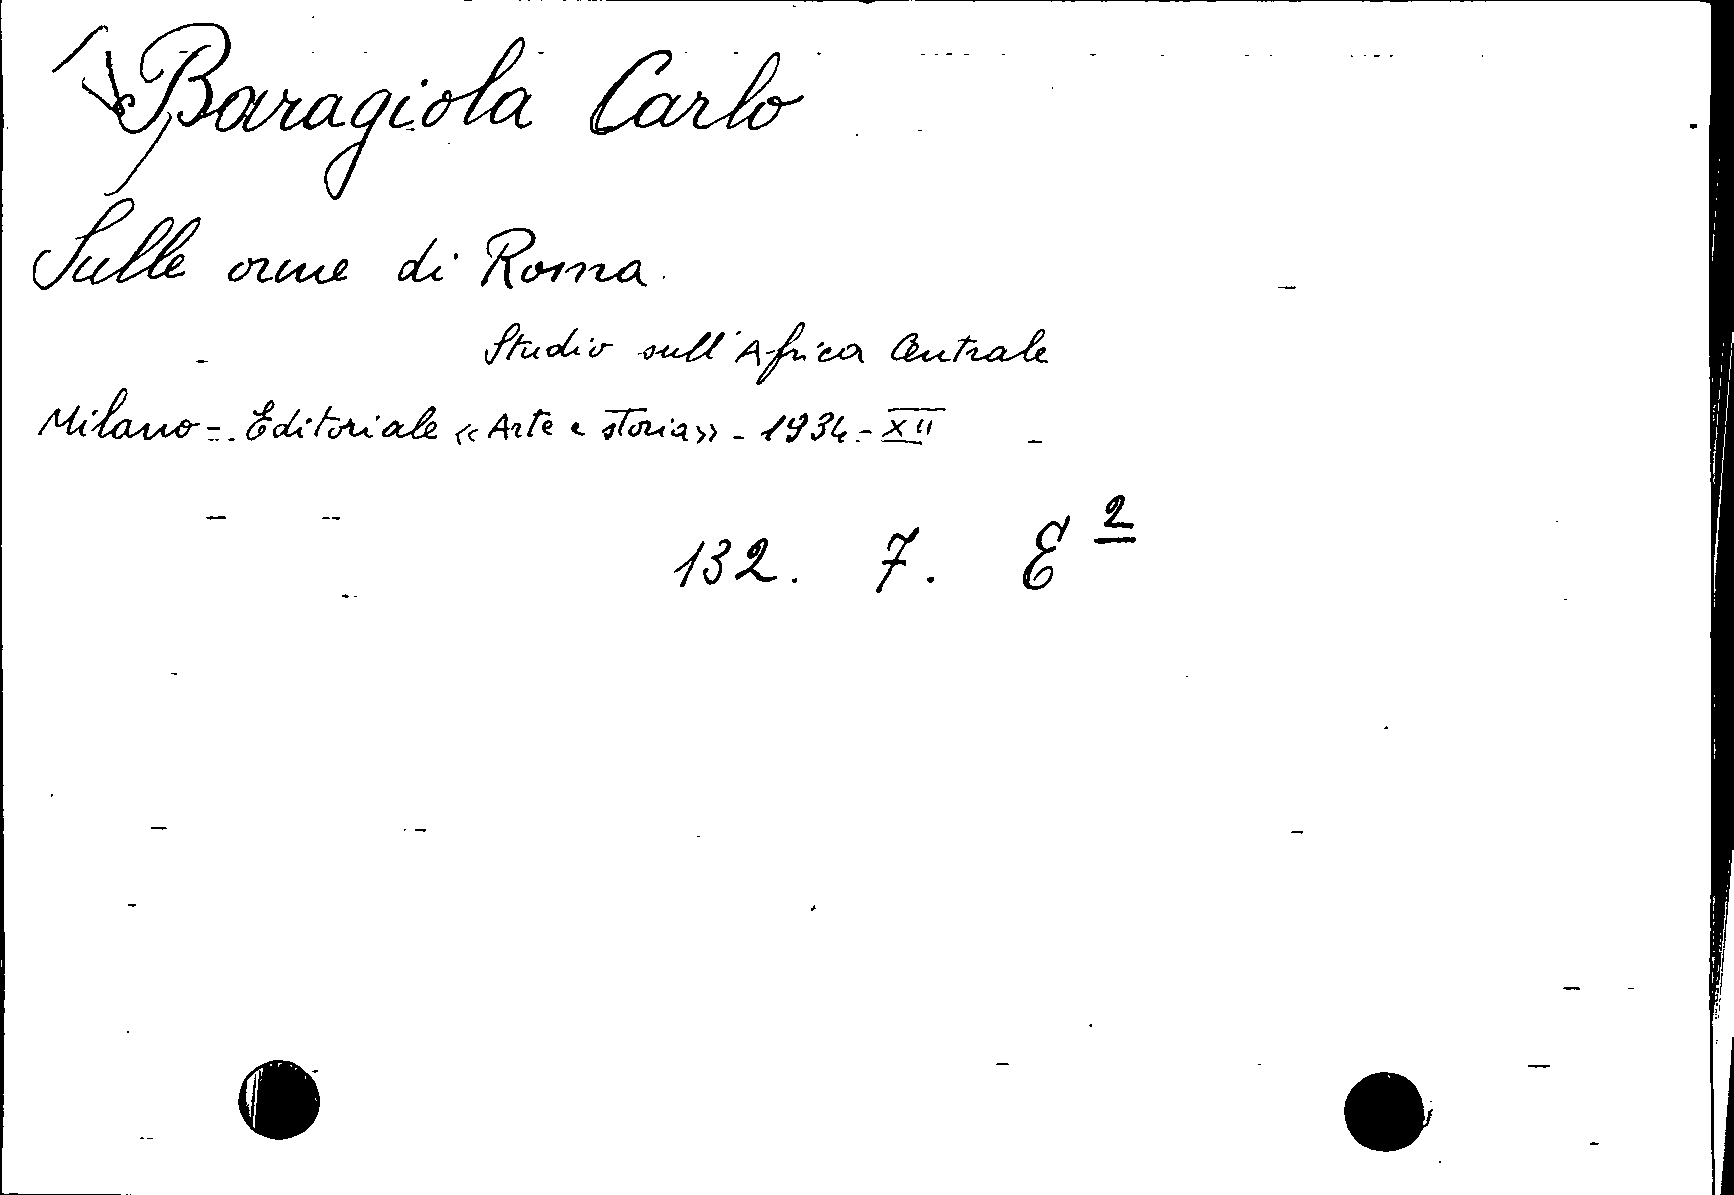 Baragiola Carlo
Sulle orme di Roma.
Studio sull'Africa Centrale
Milano - Editoriale «Arte e storia» - 1934 - XII
132. 7. E 2